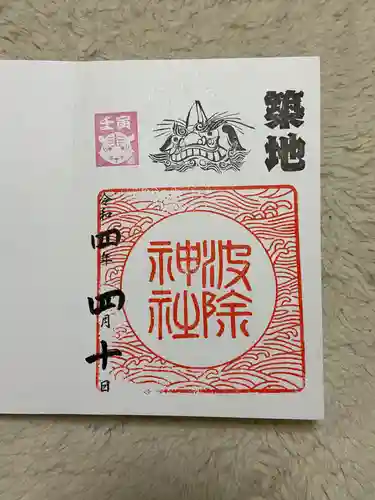 築地
壬寅
波除
神社
令和四年
四月
十日